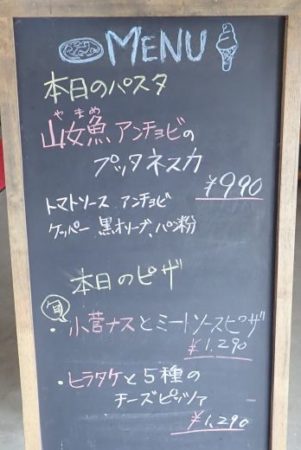 MENU
本日のパスタ
やまめ
山女魚アンチョビの
プッタネスカ
¥990
トマトソース アンチョビ
ケッパー 黒オリーブ、パン粉
本日のピザ
旬
・小菅ナスとミートソースピザ
¥1,290
・ヒラタケと5種の
チーズピッツァ
¥1,290